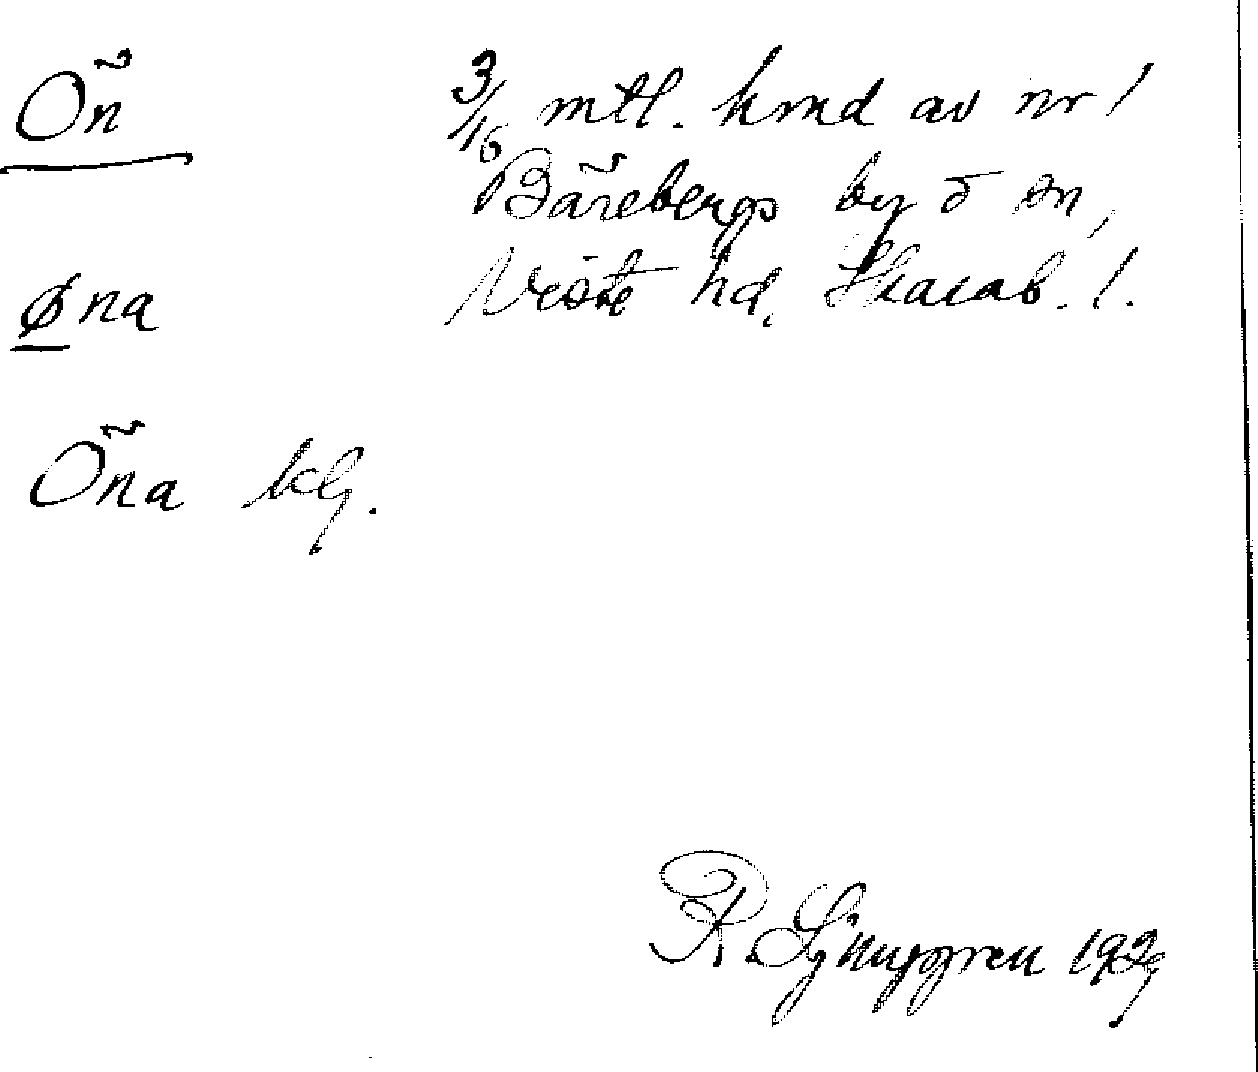 Ön
3/16 mtl. kmd av nr 1
Bärebergs by o sn,
Viste hd, Skarab. l.
øna
Öna
R. Ljunggren 1929